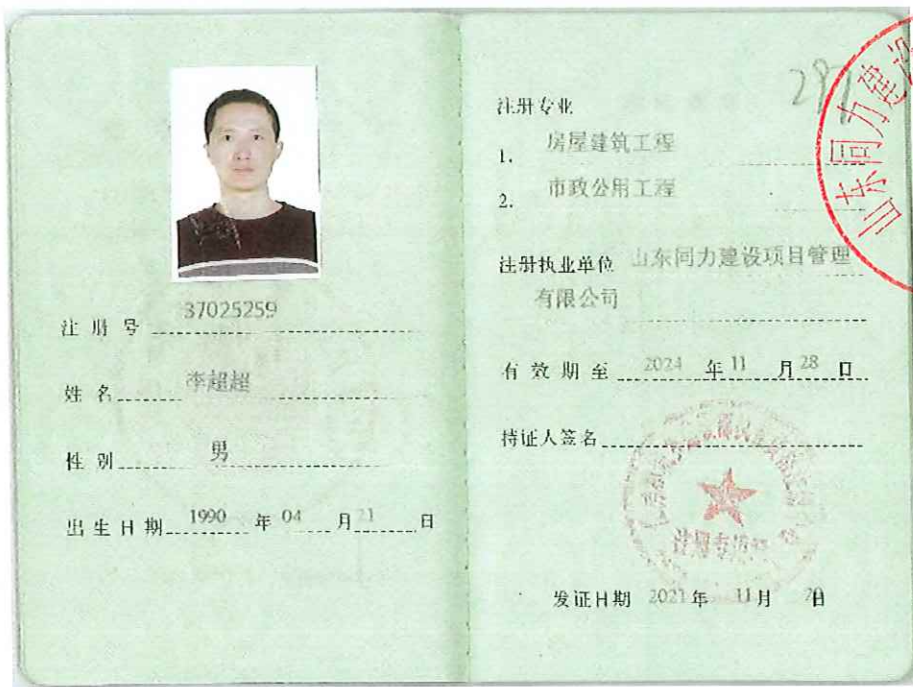 注册号 37025259
姓名 李超超
性别 男
出生日期 1990 年 04 月 21 日
297
注册专业
1. 房屋建筑工程
2. 市政公用工程
注册执业单位 山东同力建设项目管理
有限公司
有效期至 2024 年 11 月 28 日
持证人签名
发证日期 2021 年 11 月 日
山东同力建设